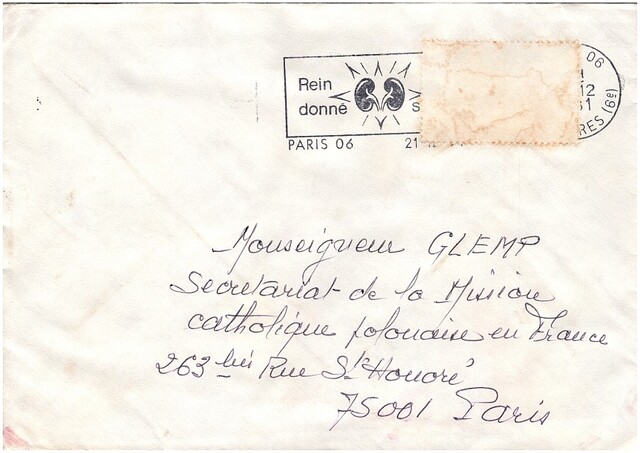 Rein
donné s
PARIS 06 21 12
06
12
81
RES (59)
Monseigneur GLEMP
Secretariat de la Mission
catholique polonaise en France
263 bis Rue St Honoré
75001 Paris